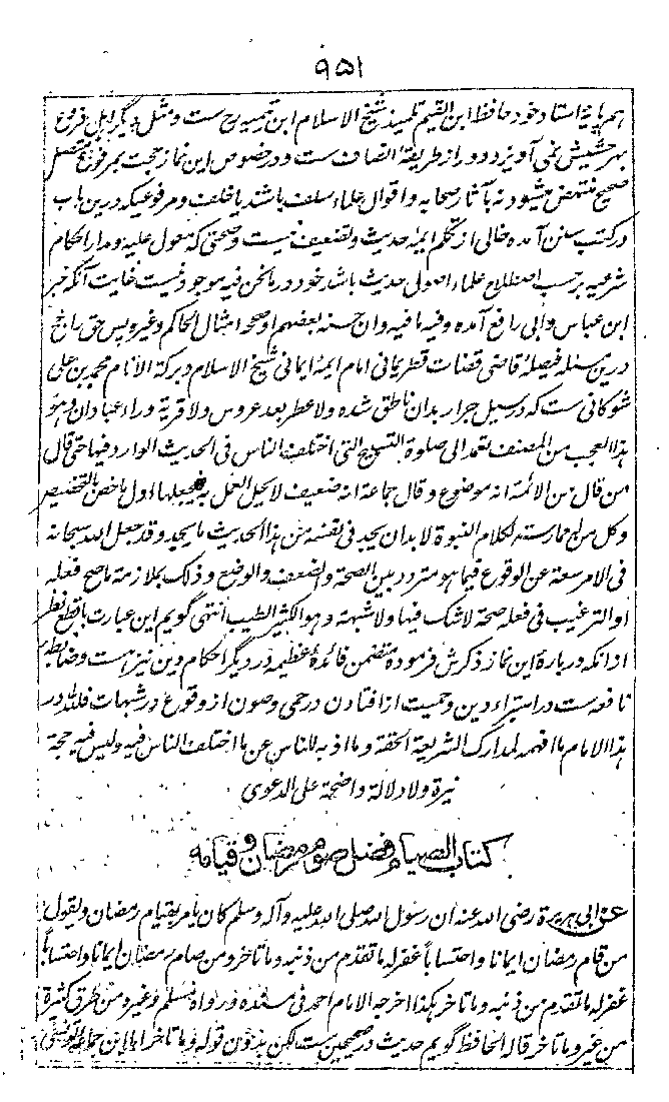 ۹۵۱
ہمپایۂ استاد خود حافظ ابن القیم تلمیذ شیخ الاسلام ابن تیمیہ رح ست و مثل دیگر اہل فروع
بہر حشیش نمی آویزد و دور از طریقۂ انصاف ست و در خصوص این نماز حجت بمرفوع متصل
صحیح منتہض میشود نہ بآثار صحابہ و اقوال علماء سلف باشد یا خلف و مرفوعیکہ درین باب
در کتب سنن آمدہ خالی از تکلم ایمۂ حدیث و تضعیف نیست و صحتی کہ معول علیہ و مدار احکام
شرعیہ بر حسب اصطلاح علماء اصول حدیث باشد خود در مانحن فیہ موجود نیست غایت آنکہ خبر
ابن عباس و ابی رافع آمدہ و فیہ ما فیہ وان حسنہ بعضہم او صححہ امثال الحاکم وغیرہ پس حق راجح
درین مسئلہ فیصلۂ قاضی قضات قطر یمانی امام ایمۂ ایمانی شیخ الاسلام و برکة الانام محمد بن علی
شوکانی ست کہ در سیل جرار بدان ناطق شدہ ولا عطر بعد عروس ولا قریة وراء عبادان وہو
ہذا العجب من المصنف تعمد الی صلوة التسبیح التی اختلف الناس فی الحدیث الوارد فیہا حتی قال
من قال من الائمة انہ موضوع و قال جماعة انہ ضعیف لا یحل العمل بہ فیجعلہا اول ما خص بالتخصیص
وکل من لہ ممارسة لکلام النبوة لابد ان یجد فی نفسہ من ہذا الحدیث ما یجد وقد جعل اللہ سبحانہ
فی الامر سعة عن الوقوع فیما ہو متردد بین الصحة والضعف والوضع وذلک بملازمة ما صح فعلہ
او الترغیب فی فعلہ صحة لا شک فیہا ولا شبہة وہو الکثیر الطیب انتہی گویم این عبارت با قطع نظر
ازانکہ دربارۂ این نماز ذکرش فرمودہ متضمن فائدۂ عظیمہ در دیگر احکام دین نیز ہست وضابطہ
نافعہ ست در استبراء دین و حمیت از افتادن در حمی وصون از وقوع در شبہات فللہ در
ہذا الامام ما افہمہ لمدارک الشریعة الحقة وما اذبہ للناس عن ما اختلف الناس فیہ ولیس فیہ حجة
نیرة ولا دلالة واضحة علی الدعوی
کتاب الصیام فضل صوم رمضان و قیامہ
عن ابی ہریرة رضی اللہ عنہ ان رسول اللہ صلی اللہ علیہ وآلہ وسلم کان یامر بقیام رمضان ویقول
من قام رمضان ایمانا واحتسابا غفر لہ ما تقدم من ذنبہ وما تاخر ومن صام رمضان ایمانا واحتسابا
غفر لہ ما تقدم من ذنبہ وما تاخر ہکذا اخرجہ الامام احمد فی مسندہ ورواہ مسلم وغیرہ من طرق کثیرة
من غیر وما تاخر قالہ الحافظ گویم حدیث در صحیحین ست لکن بدون قولہ وما تاخر